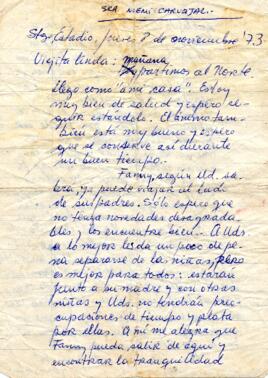 SRA NIEMI CARVAJAL.
Stgo, Estadio, jueves 8 de noviembre '73.
Viejita linda: mañana
partimos al Norte.
llego como "a mi casa". Estoy
muy bien de salud y espero se-
guir estándolo. El ánimo tam-
bién está muy bueno y espero
que se conserve así durante
un buen tiempo.
Fanny, según Ud. sa-
brá, ya puede viajar al lado
de sus padres. Sólo espero que
no tenga novedades desagrada-
bles y los encuentre bien. A Uds
a lo mejor les da un poco de pena
separarse de las niñas, pero
es mejor para todos: estarán
junto a su madre y con otras
niñas y Uds. no tendrán preo-
cupaciones de tiempo y plata
por ellas. A mí me alegra que
Fanny pueda salir de aquí y
encontrar la tranquilidad